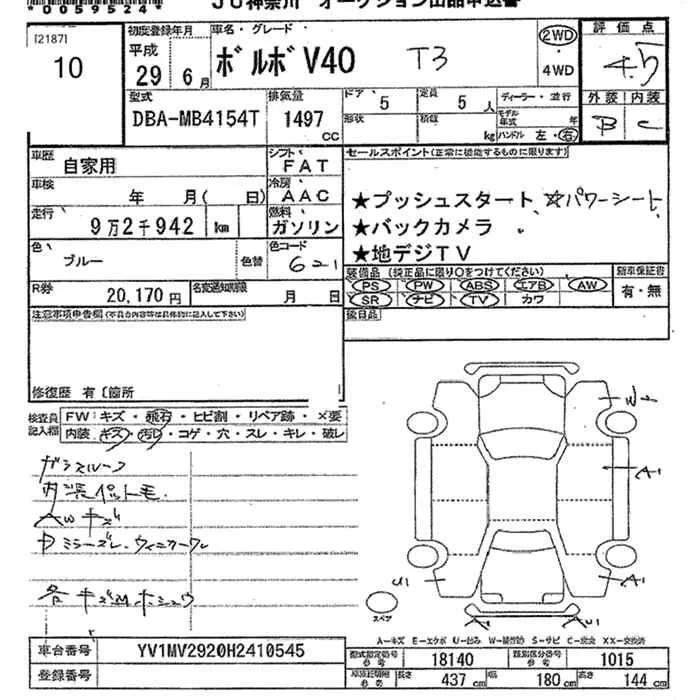 *0059524*
JU神奈川 オークション出品申込書
[2187]
10
初度登録年月
平成
29 6月
車名・グレード
ボルボV40 T3
2WD
・4WD
評価点
4.5
外装 内装
B C
型式
DBA-MB4154T
排気量
1497 cc
ドア 5
定員 5人
形状 積載 kg
ディーラー・並行
モデル年式 年
ハンドル 左・右
車歴
自家用
シフト
FAT
車検 年 月( 日)
冷房
AAC
走行
9万2千942 km
燃料
ガソリン
色
ブルー
色替
色コード
621
R券
20,170円
名変通知期限 月 日
セールスポイント(正常に機能するものに限ります)
★プッシュスタート ☆パワーシート
★バックカメラ
★地デジTV
装備品 (純正品に限り○をつけてください)
PS PW ABS エアB AW
SR ナビ TV カワ
新車保証書
有・無
注意事項申告欄(不具合内容等は具体的に記入して下さい)
修復歴 有〔箇所
検査員記入欄
FW:キズ・飛石・ヒビ割・リペア跡・×要
内装:キズ・汚レ・コゲ・穴・スレ・キレ・破レ
ガラスルーフ
内装ペット毛
AWキズ
各キズ凹ホシュウ
W2
A1
U1 A1
スペア
A1 AU1
A-キズ E-エクボ U-凹み W-補修跡 S-サビ C-腐食 XX-交換済
車台番号
YV1MV2920H2410545
登録番号
型式指定番号 参考 18140
類別区分番号 参考 1015
参考 長さ 437 cm 幅 180 cm 高さ 144 cm